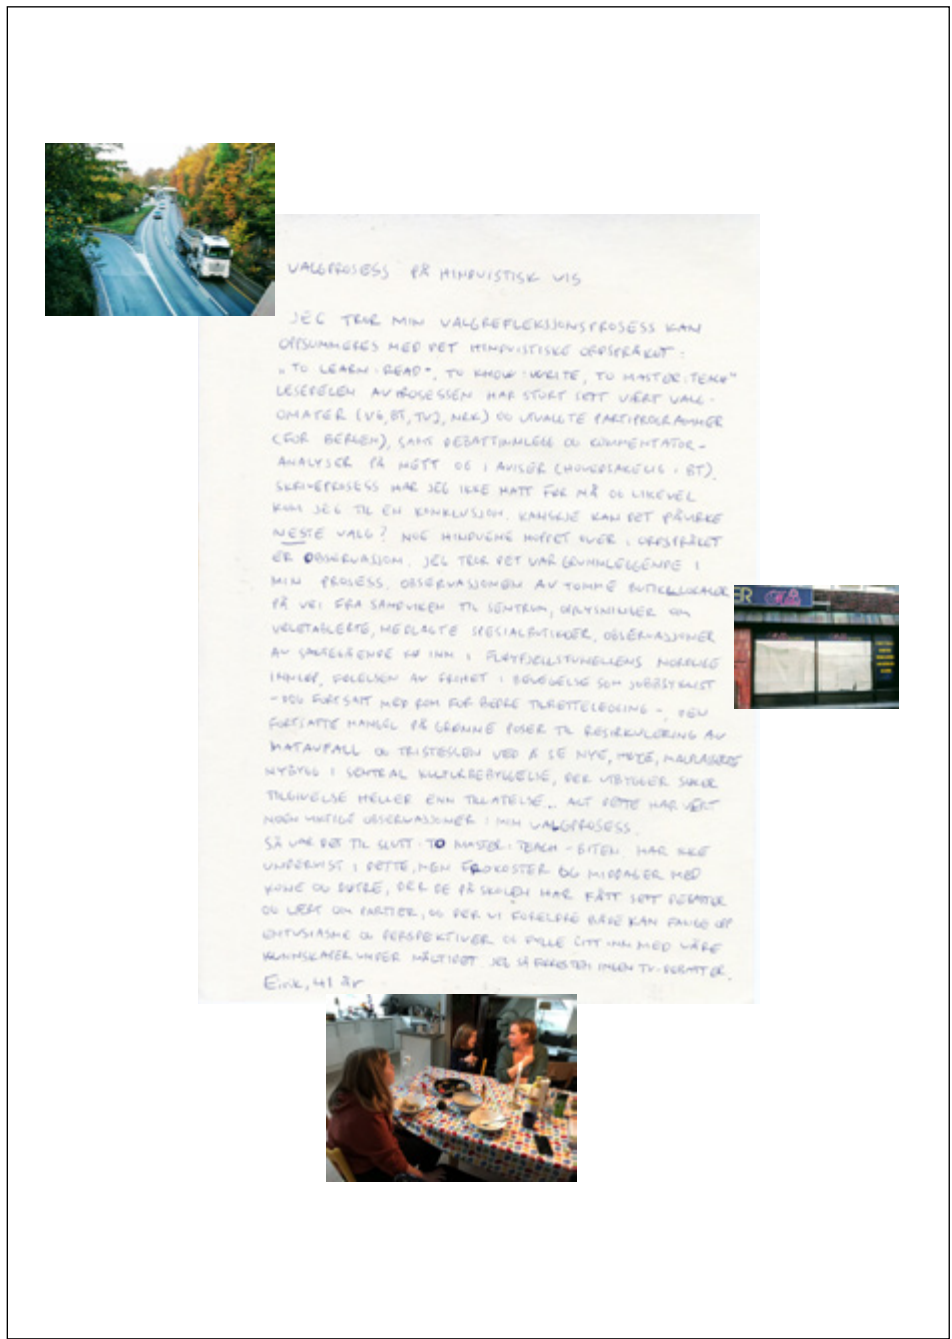 VALGPROSESS PÅ HINDUISTISK VIS
JEG TROR MIN VALGREFLEKSJONSPROSESS KAN
OPPSUMMERES MED DET HINDUISTISKE ORDSPRÅKET:
"TO LEARN: READ", TO KNOW: WRITE, TO MASTER: TEACH"
LESEDELEN AV PROSESSEN HAR STORT SETT VÆRT VALG-
OMATER (VG, BT, TV2, NRK) OG UTVALGTE PARTIPROGRAMMER
(FOR BERGEN), SAMT DEBATTINNLEGG OG KOMMENTATOR-
ANALYSER PÅ NETT OG I AVISER (HOVEDSAKELIG I BT).
SKRIVEPROSESS HAR JEG IKKE HATT FØR NÅ OG LIKEVEL
KOM JEG TIL EN KONKLUSJON. KANSKJE KAN DET PÅVIRKE
NESTE VALG? NOE HINDUENE HOPPET OVER I ORDSPRÅKET
ER OBSERVASJON. JEG TROR DET VAR GRUNNLEGGENDE I
MIN PROSESS. OBSERVASJONEN AV TOMME BUTIKKLOKALER
PÅ VEI FRA SANDVIKEN TIL SENTRUM, OPPLYSNINGER OM
VELETABLERTE, NEDLAGTE SPESIALBUTIKKER, OBSERVASJONER
AV SAKTEGÅENDE KØ INN I FLØYFJELLSTUNELLENS NORDLIGE
INNLØP, FØLELSEN AV FRIHET I BEVEGELSE SOM JOBBSYKLIST
- DOG FORTSATT MED ROM FOR BEDRE TILRETTELEGGING -, DEN
FORTSATTE MANGEL PÅ GRØNNE POSER TIL RESIRKULERING AV
MATAVFALL OG TRISTESSEN VED Å SE NYE, HØYE, MALPLASSERTE
NYBYGG I SENTRAL KULTURBEBYGGELSE, DER UTBYGGER SØKER
TILGIVELSE HELLER ENN TILLATELSE... ALT DETTE HAR VÆRT
NOEN VIKTIGE OBSERVASJONER I MIN VALGPROSESS.
SÅ VAR DET TIL SLUTT - TO MASTER: TEACH - BITEN. HAR IKKE
UNDERVIST I DETTE, MEN FROKOSTER OG MIDDAGER MED
KONE OG DØTRE, DER DE PÅ SKOLEN HAR FÅTT SETT DEBATTER
OG LÆRT OM PARTIER, OG DER VI FORELDRE BÅDE KAN FANGE OPP
ENTUSIASME OG PERSPEKTIVER OG FYLLE LITT INN MED VÅRE
KUNNSKAPER UNDER MÅLTIDET. JEG SÅ FORRESTEN INGEN TV-DEBATTER.
Eirik, 41 år
ER